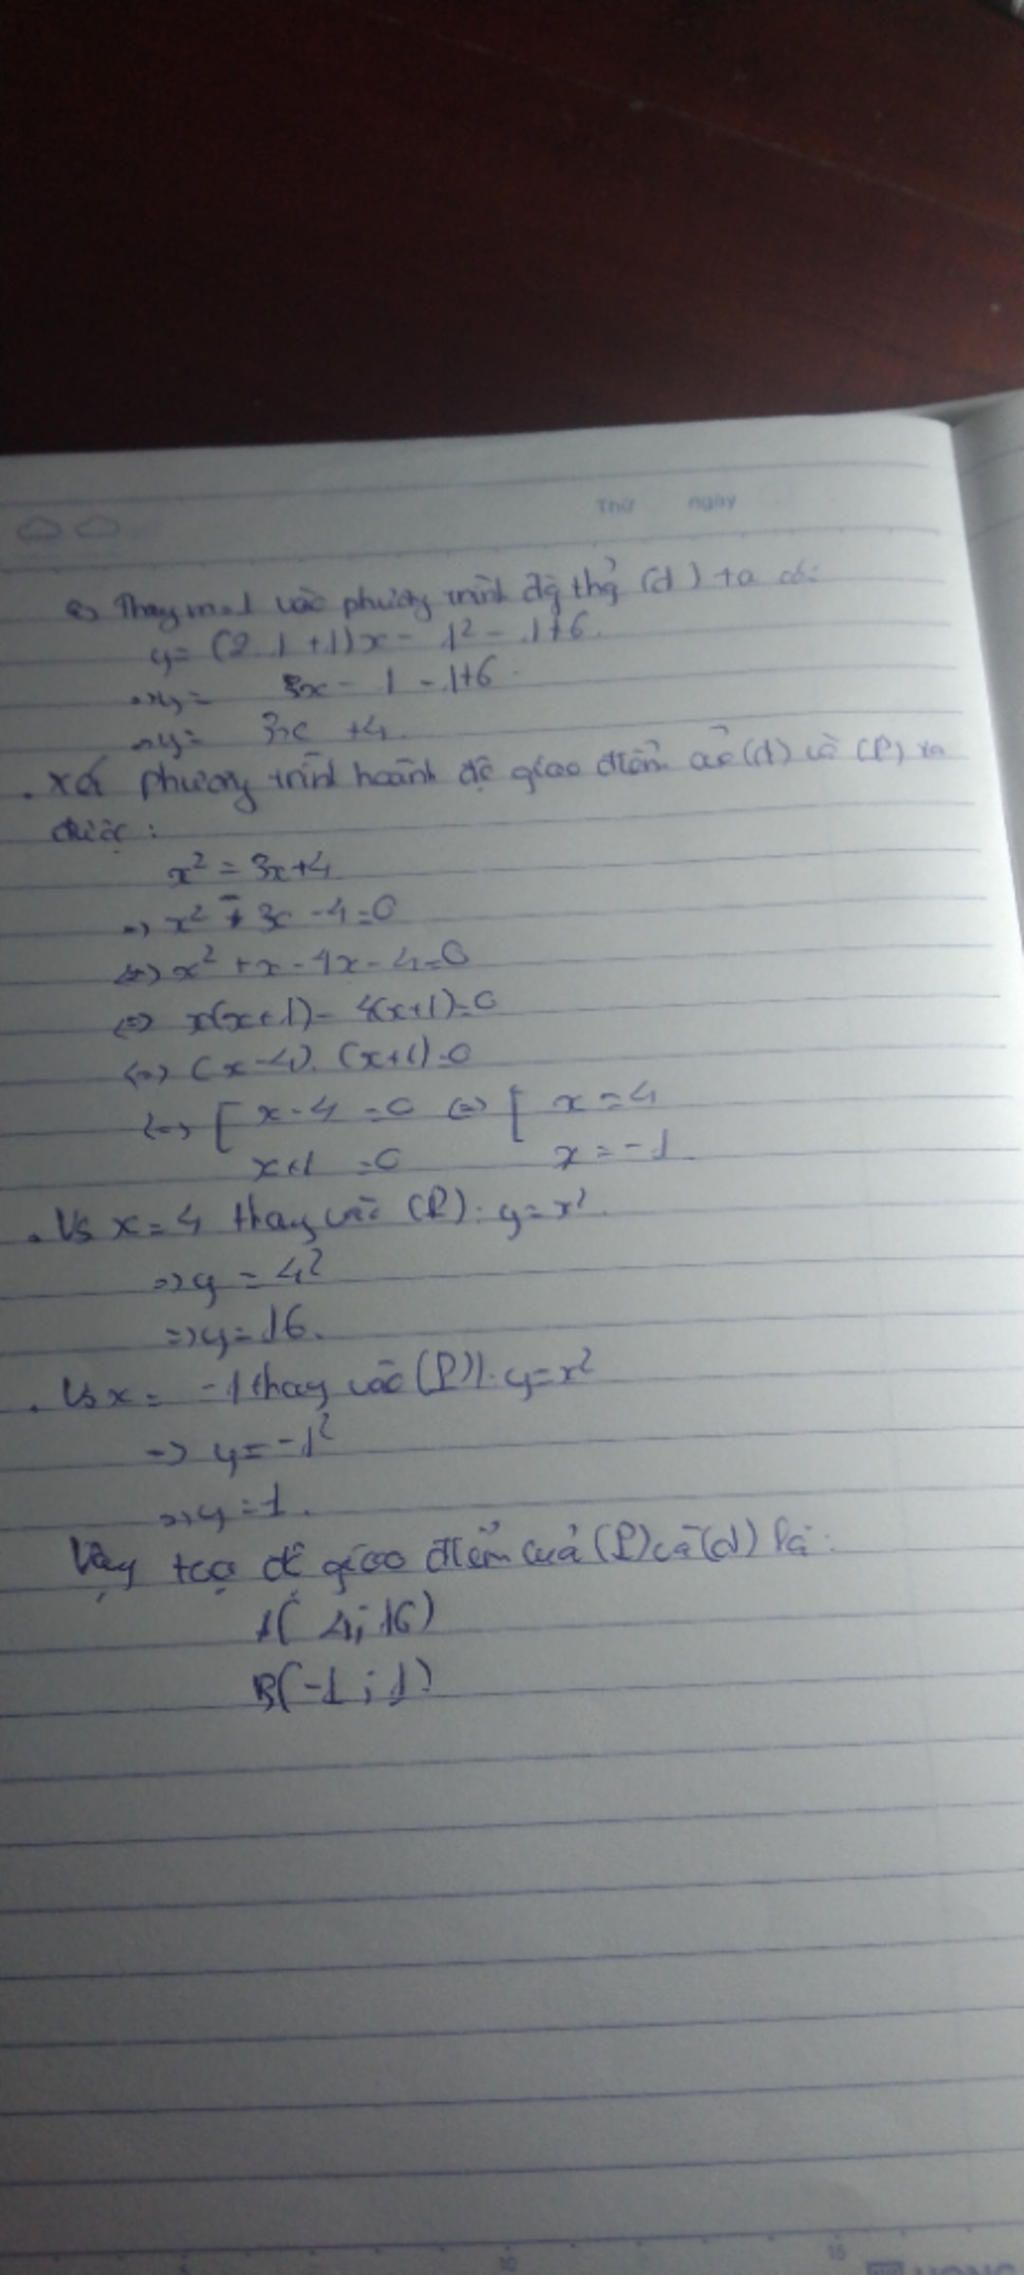 Thứ ngày
a) Thay m=1 vào phương trình đồ thị (d) ta có:
y= (2.1+1)x - 1² - 1+6.
=>y= 3x - 1 - 1+6
=>y= 3x +4.
. Xét phương trình hoành độ giao điểm của (d) và (P) ta
được:
x² = 3x+4
=> x² - 3x -4=0
<=> x² +x - 4x - 4=0
<=> x(x+1) - 4(x+1)=0
<=> (x-4). (x+1)=0
<=> [ x-4 =0 <=> [ x=4
x+1 =0 x=-1
. Vs x=4 thay vào (P): y=x².
=>y = 4²
=>y=16.
. Vs x= -1 thay vào (P): y=x²
=> y=-1²
=>y=1.
Vậy toạ độ giao điểm của (P) và (d) là:
A( 4; 16)
B(-1 ; 1)
15
HONG